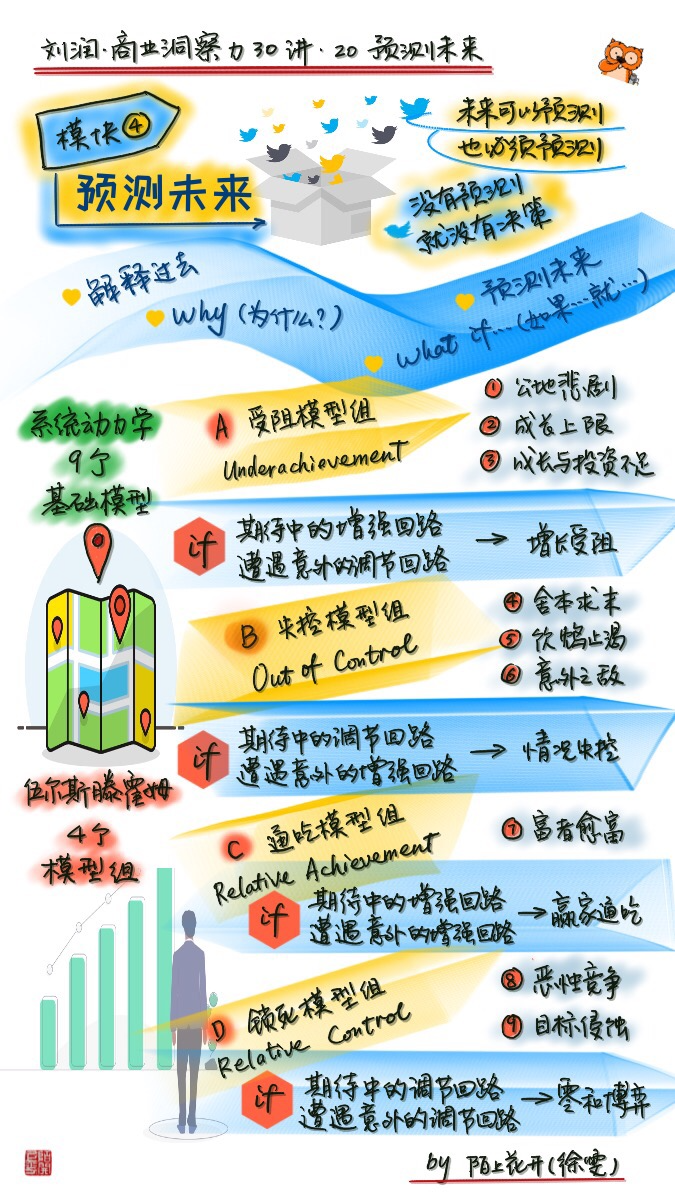 刘润·商业洞察力30讲·20 预测未来
模快④
预测未来
未来可以预测
也必须预测
没有预测
就没有决策
解释过去
Why (为什么?)
预测未来
What if…(如果…就…)
系统动力学
9个
基础模型
A 受阻模型组
Underachievement
① 公地悲剧
② 成长上限
③ 成长与投资不足
if 期待中的增强回路
遭遇意外的调节回路
→ 增长受阻
B 失控模型组
Out of Control
④ 舍本求末
⑤ 饮鸩止渴
⑥ 意外之敌
if 期待中的调节回路
遭遇意外的增强回路
→ 情况失控
伍尔斯滕霍姆
4个
模型组
C 通吃模型组
Relative Achievement
⑦ 富者愈富
if 期待中的增强回路
遭遇意外的增强回路
→ 赢家通吃
D 锁死模型组
Relative Control
⑧ 恶性竞争
⑨ 目标侵蚀
if 期待中的调节回路
遭遇意外的调节回路
→ 零和博弈
by 陌上花开(徐雯)